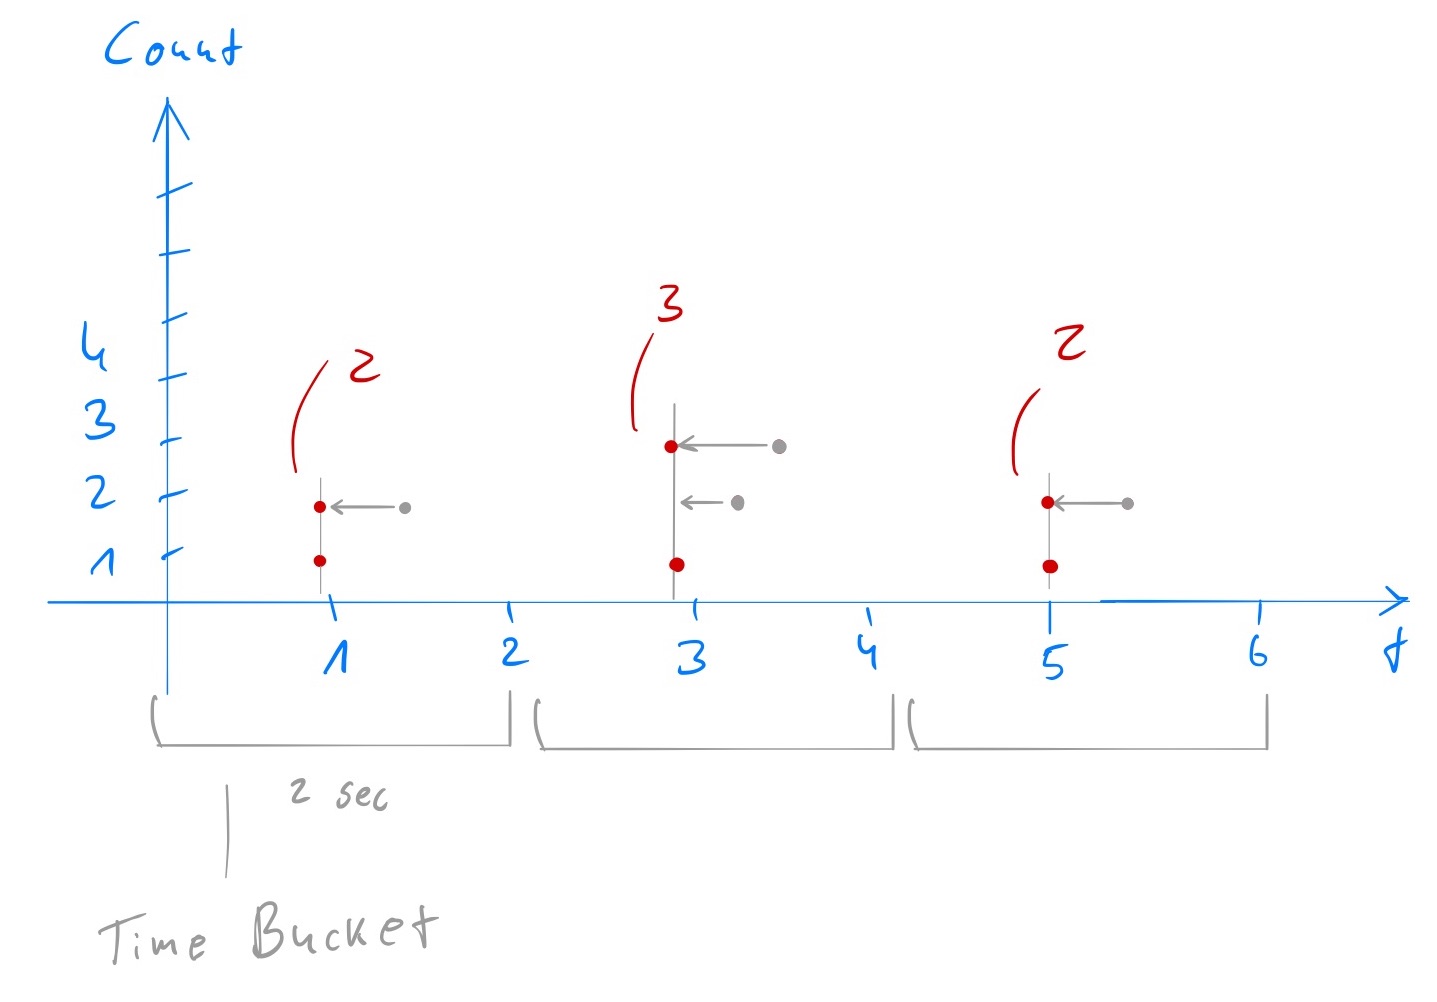 Count
3
2
2
4
3
2
1
1 2 3 4 5 6 t
2 sec
Time Bucket